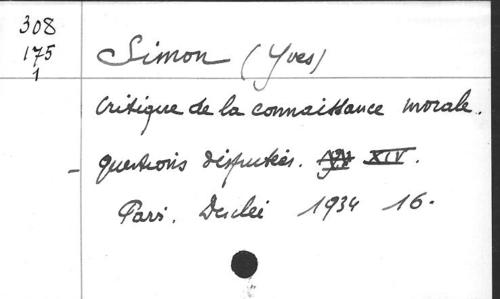 308
175
1
Simon (Yves)
Critique de la connaissance morale.
- questions disputées. XIV.
Paris. Desclée 1934 16.